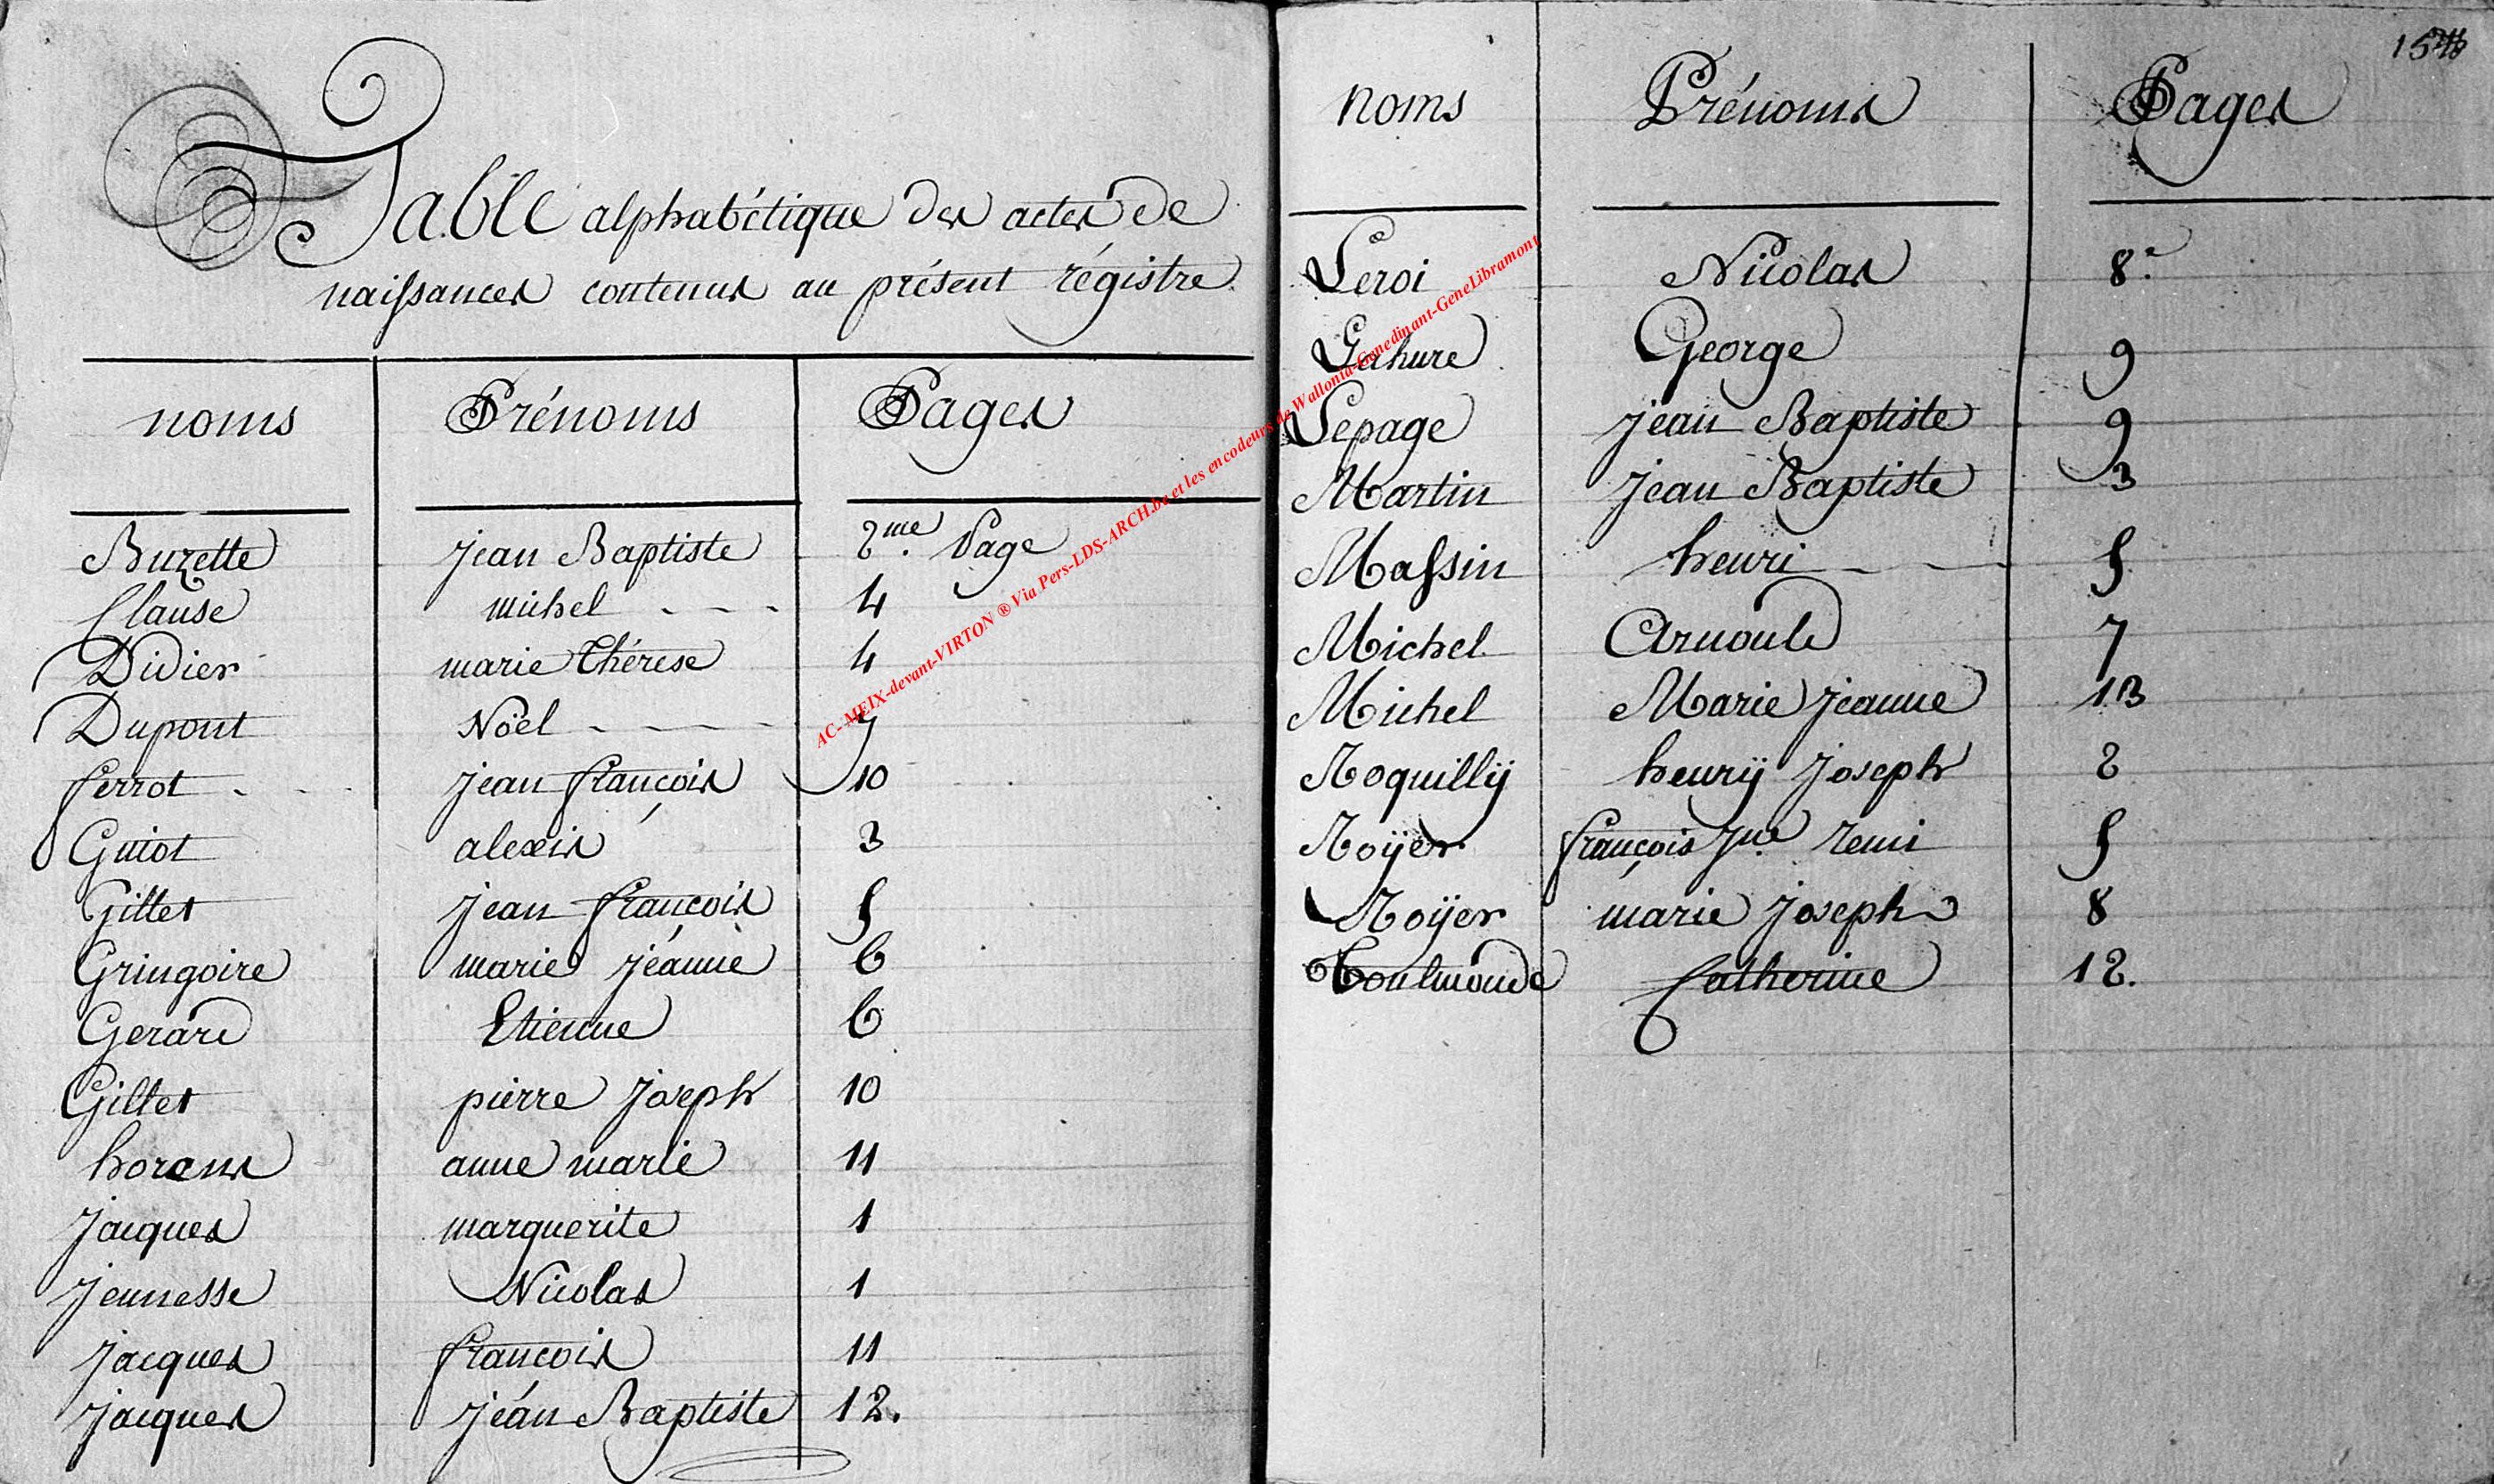 Table alphabétique des actes de
naissances contenus au présent régistre
noms Prénoms Pages
Buzette jean Baptiste 2me. Page
Clause michel - - - 4
Didier marie thérese 4
Dupont Noël - - - - 7
ferrot - - - jean françois 10
Guiot alexis 3
Gillet jean françois 5
Gringoire marie jéanne 6
Gerard Etienne 6
Gillet pierre joseph 10
anne marie 11
jacques marguerite 1
jeunesse Nicolas 1
jacques françois 11
jacques jéan Baptiste 12.
noms Prénoms Pages
Leroi Nicolas 8.e
Lahure George 9
Lepage jean Baptiste 9
Martin jean Baptiste 3
Massin henri - - - 5
Michel Arnould 7
Michel Marie jeanne 13
Roquilly henrÿ joseph 2
Roÿer françois remi 5
Roÿer marie joseph 8
Toulmonde Catherine 12.
AC-MEIX-devant-VIRTON ® Via Pers-LDS-ARCH.be et les encodeurs de Wallonia-Genedinant-GeneLibramont